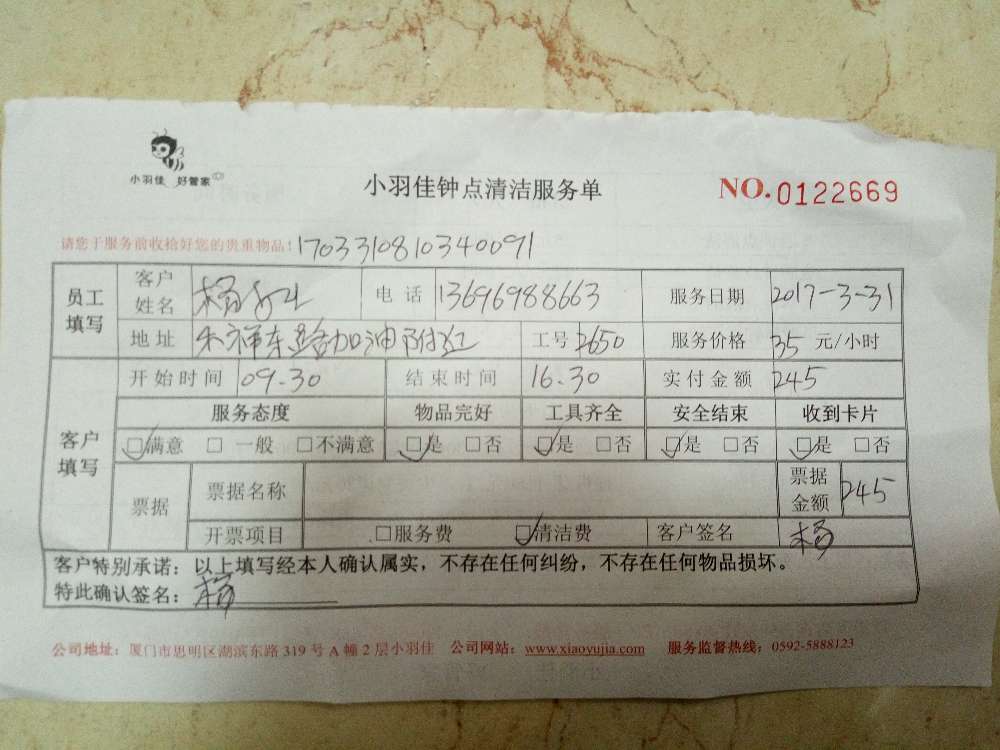 小羽佳 好管家
小羽佳钟点清洁服务单
NO.0122669
请您于服务前收检好您的贵重物品!
170331081034009​1
员工填写 客户姓名 杨 电话 13696988663 服务日期 2017-3-31
地址 祥东路加油附近 工号 2650 服务价格 35 元/小时
客户填写 开始时间 09.30 结束时间 16.30 实付金额 245
服务态度 物品完好 工具齐全 安全结束 收到卡片
☑满意 □一般 □不满意 ☑是 □否 ☑是 □否 ☑是 □否 ☑是 □否
票据 票据名称 票据金额 245
开票项目 □服务费 ☑清洁费 客户签名 杨
客户特别承诺：以上填写经本人确认属实，不存在任何纠纷，不存在任何物品损坏。
特此确认签名：杨
公司地址：厦门市思明区湖滨东路 319 号 A 幢 2 层小羽佳 公司网站：www.xiaoyujia.com 服务监督热线：0592-5888123